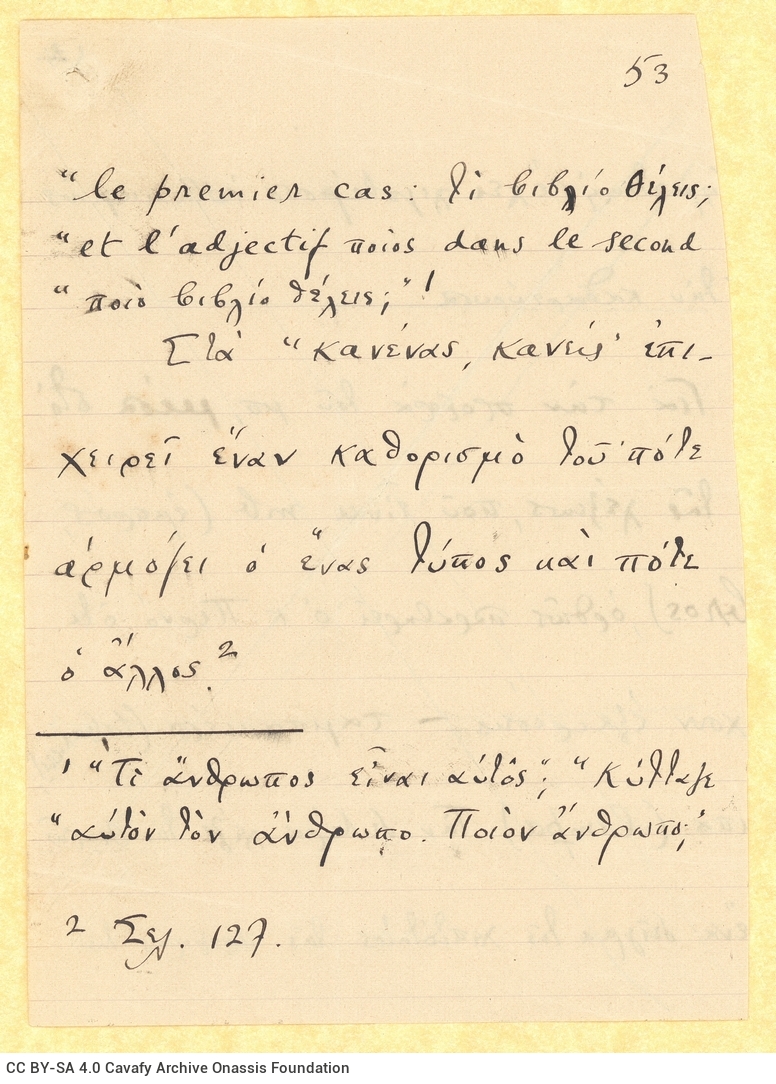 53
“le premier cas: τί βιβλίο θέλεις;
“et l'adjectif ποιὸς dans le second
“ποιὸ βιβλίο θέλεις;”¹
Στὰ “κανένας, κανείς” ἐπι-
χειρεῖ ἕναν καθορισμὸ τοῦ πότε
ἁρμόζει ὁ ἕνας τύπος καὶ πότε
ὁ ἄλλος.²
¹ “Τὶ ἄνθρωπος εἶναι αὐτός”; “Κύτταξε
“αὐτὸν τὸν ἄνθρωπο. Ποιὸν ἄνθρωπο;”
² Σελ. 127.
CC BY-SA 4.0 Cavafy Archive Onassis Foundation